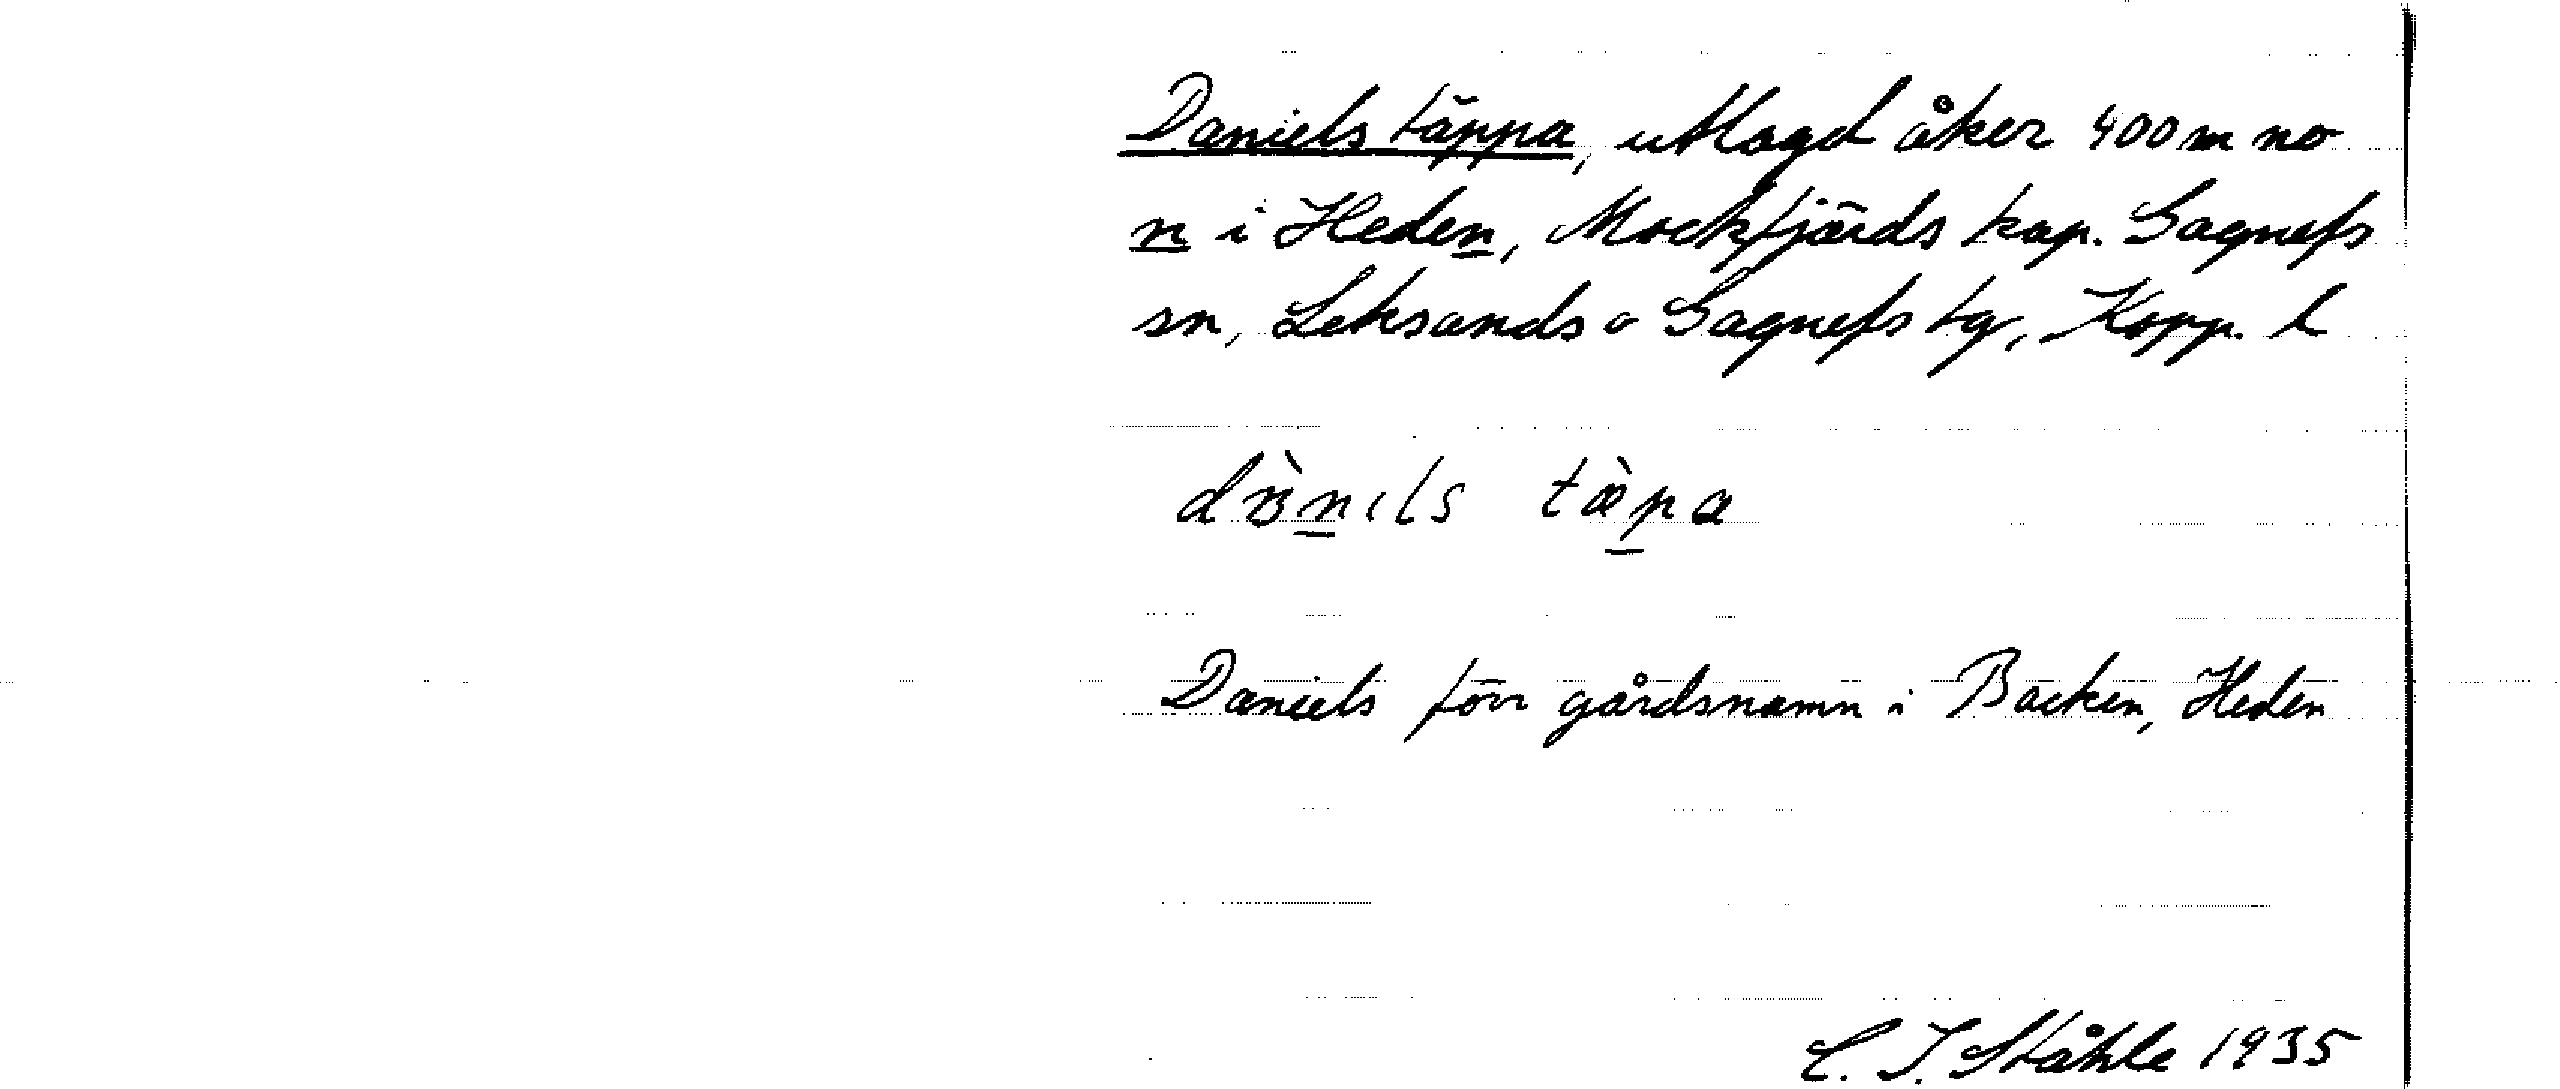 Daniels täppa, utlagd åker 400 m no
n i Heden, Mockfjärds kap. Gagnefs
sn, Leksands o Gagnefs tg, Kopp. l
tæ̀pa
Daniels förr gårdsnamn i Backen, Heden
C. I. Ståhle 1935